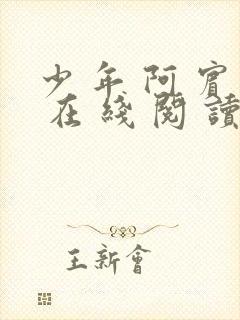 少年阿賓
在綫閱讀
王新會